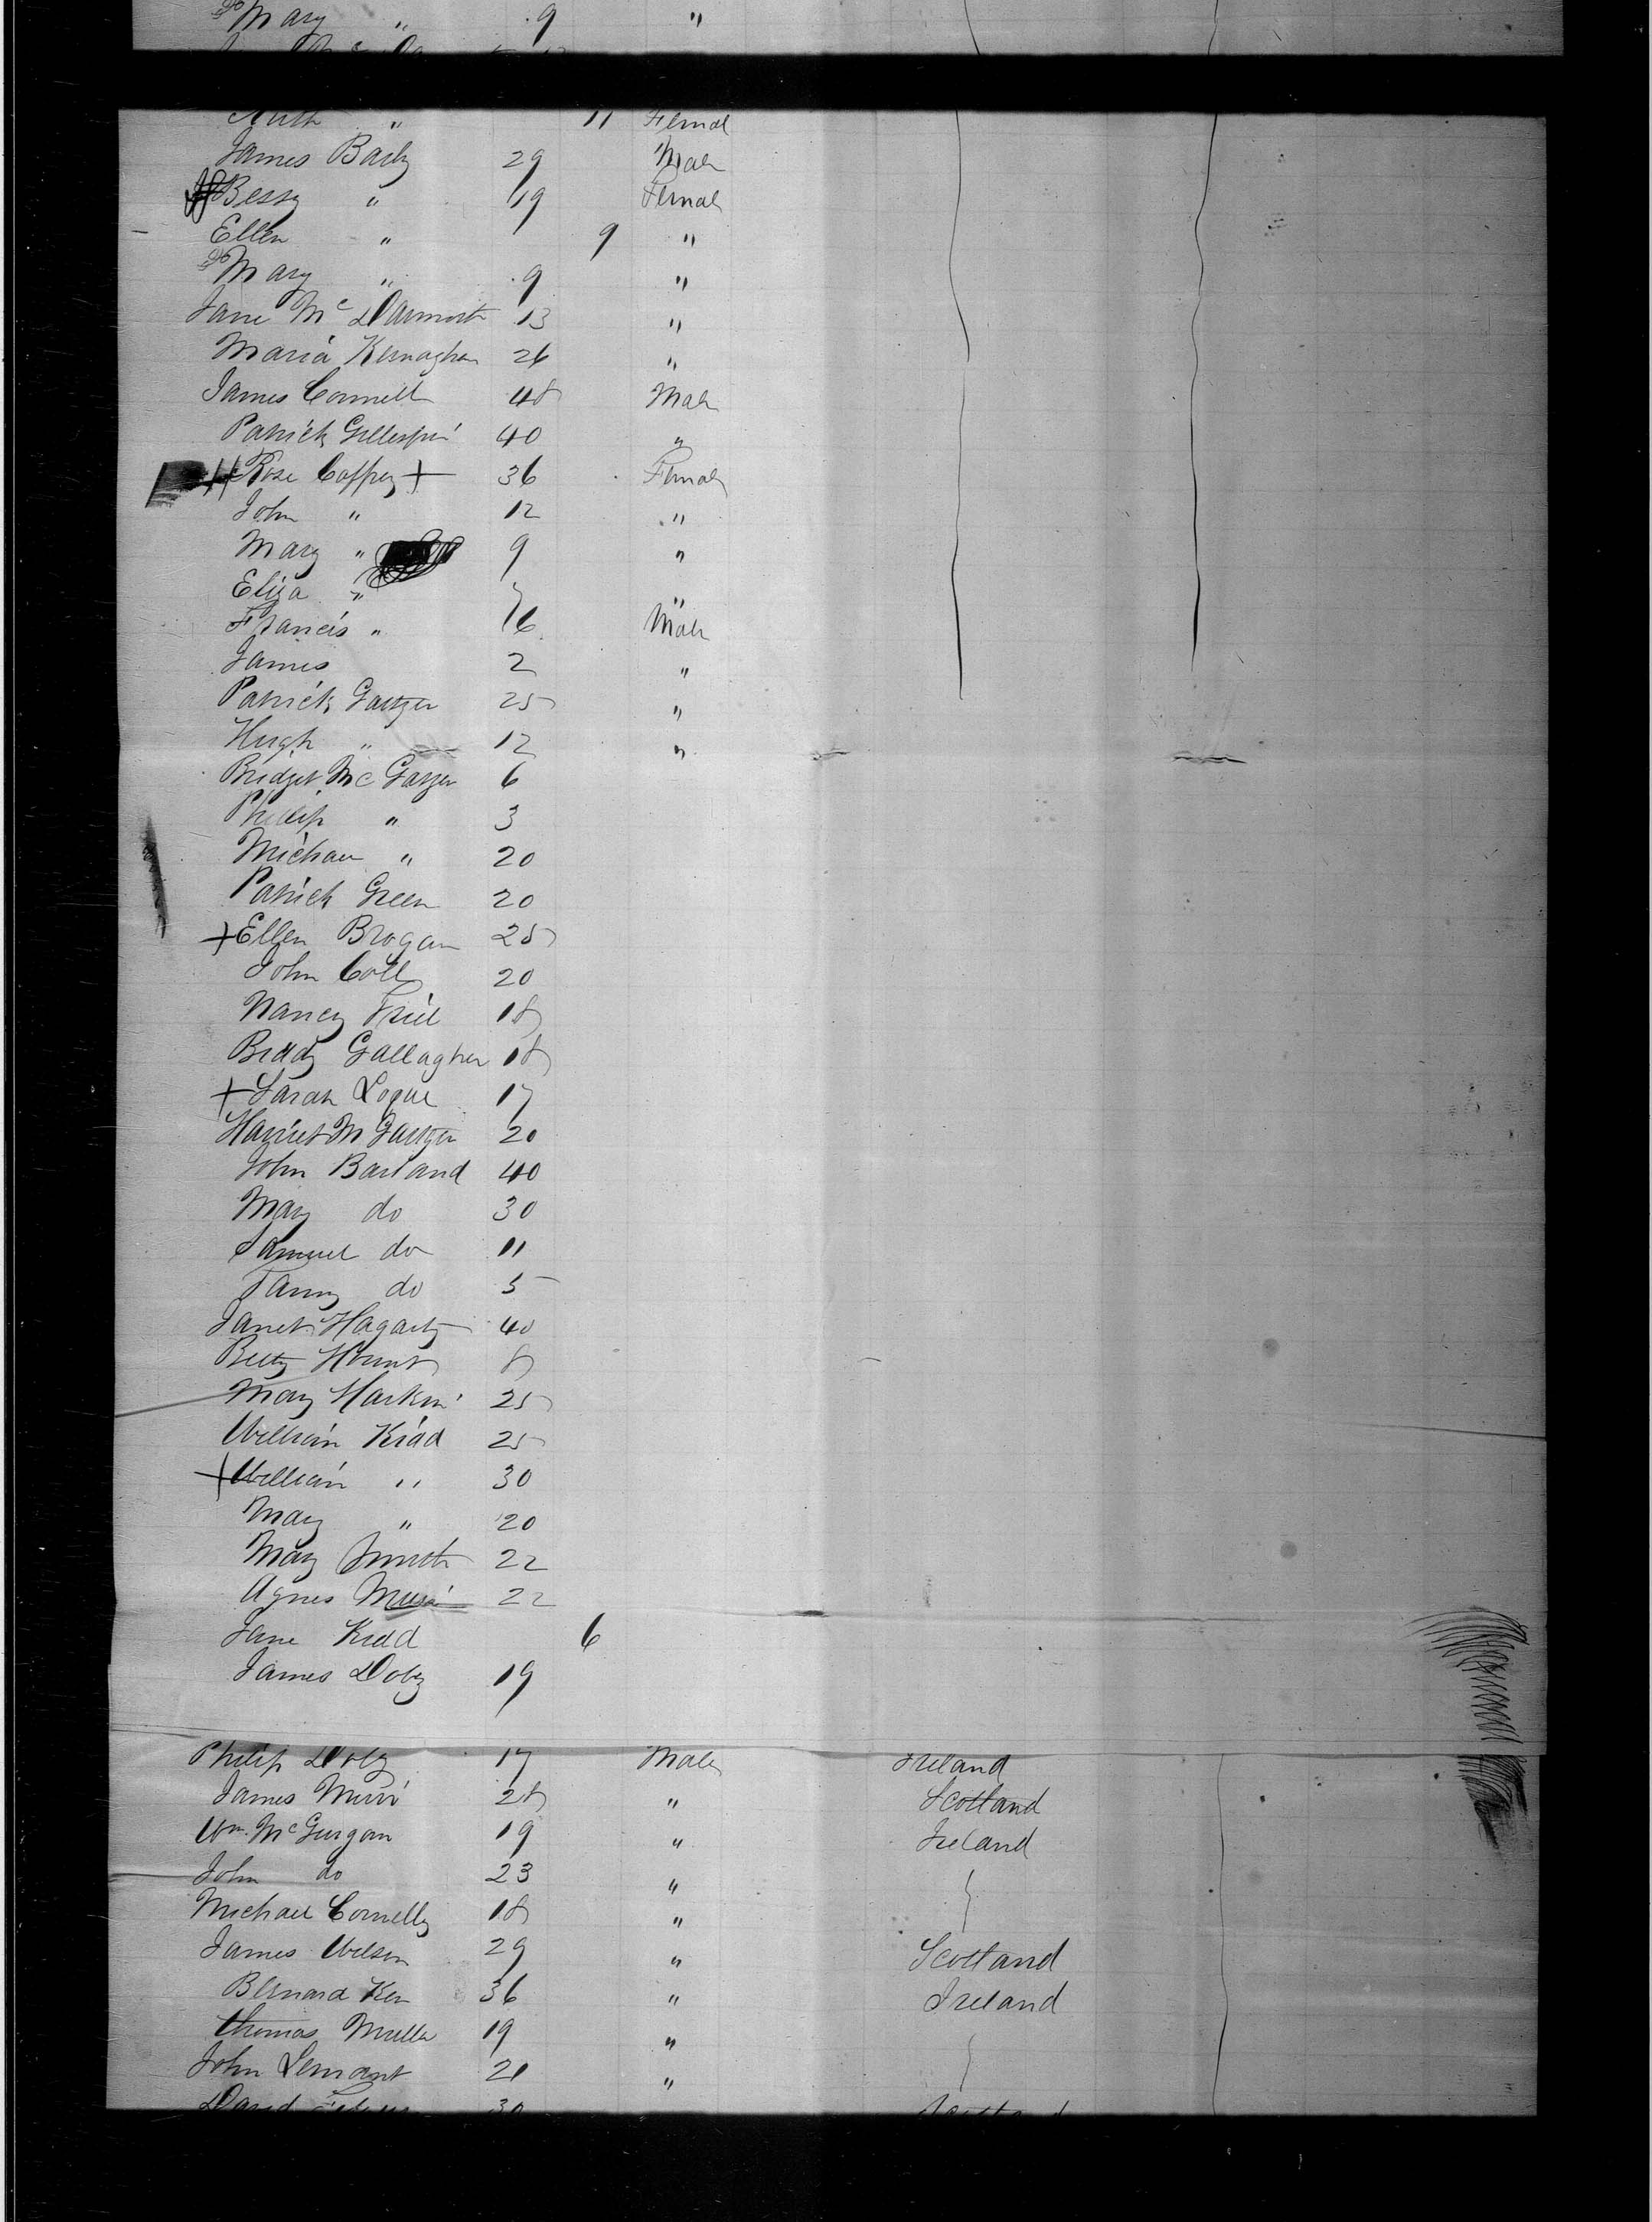 Mary " 9 "
Ruth " 11 Femal
James Baily 29 Male
Bessy " 19 Female
Ellen " 9 "
Mary " 9 "
Jane Mc Darmoth 13 "
Maria Kernaghan 26 "
James Connell 48 Male
Patrick Gillespie 40 "
Rose Caffrey + 36 Female
John " 12 "
Mary " 9 "
Eliza " 7 "
Francis " 6 Male
James 2 "
Patrick 25 "
Hugh " 12 "
Bridget Mc 6
Philip " 3
Michael " 20
Patrick Green 20
+ Ellen Brogan 25
John Coll 20
Nancy Friel 18
Biddy Gallagher 18
+ Sarah Logue 17
Harriet M 20
John Barland 40
Mary do 30
Samuel do 11
Fanny do 5
Janet Hagarty 40
Betty Hunt 8
Mary Harkin 25
William Kidd 25
+ William " 30
Mary " 20
Mary Smith 22
Agnes Muir 22
Jane Kidd 6
James Doby 19
Philip Doby 17 Male Ireland
James Muir 28 " Scotland
Wm. McGurgan 19 " Ireland
John do 23 "
Michael Connelly 18 "
James Wilson 29 " Scotland
Bernard Ker 36 " Ireland
Thomas Miller 19 "
John Lemont 21 "
David 30 Scotland